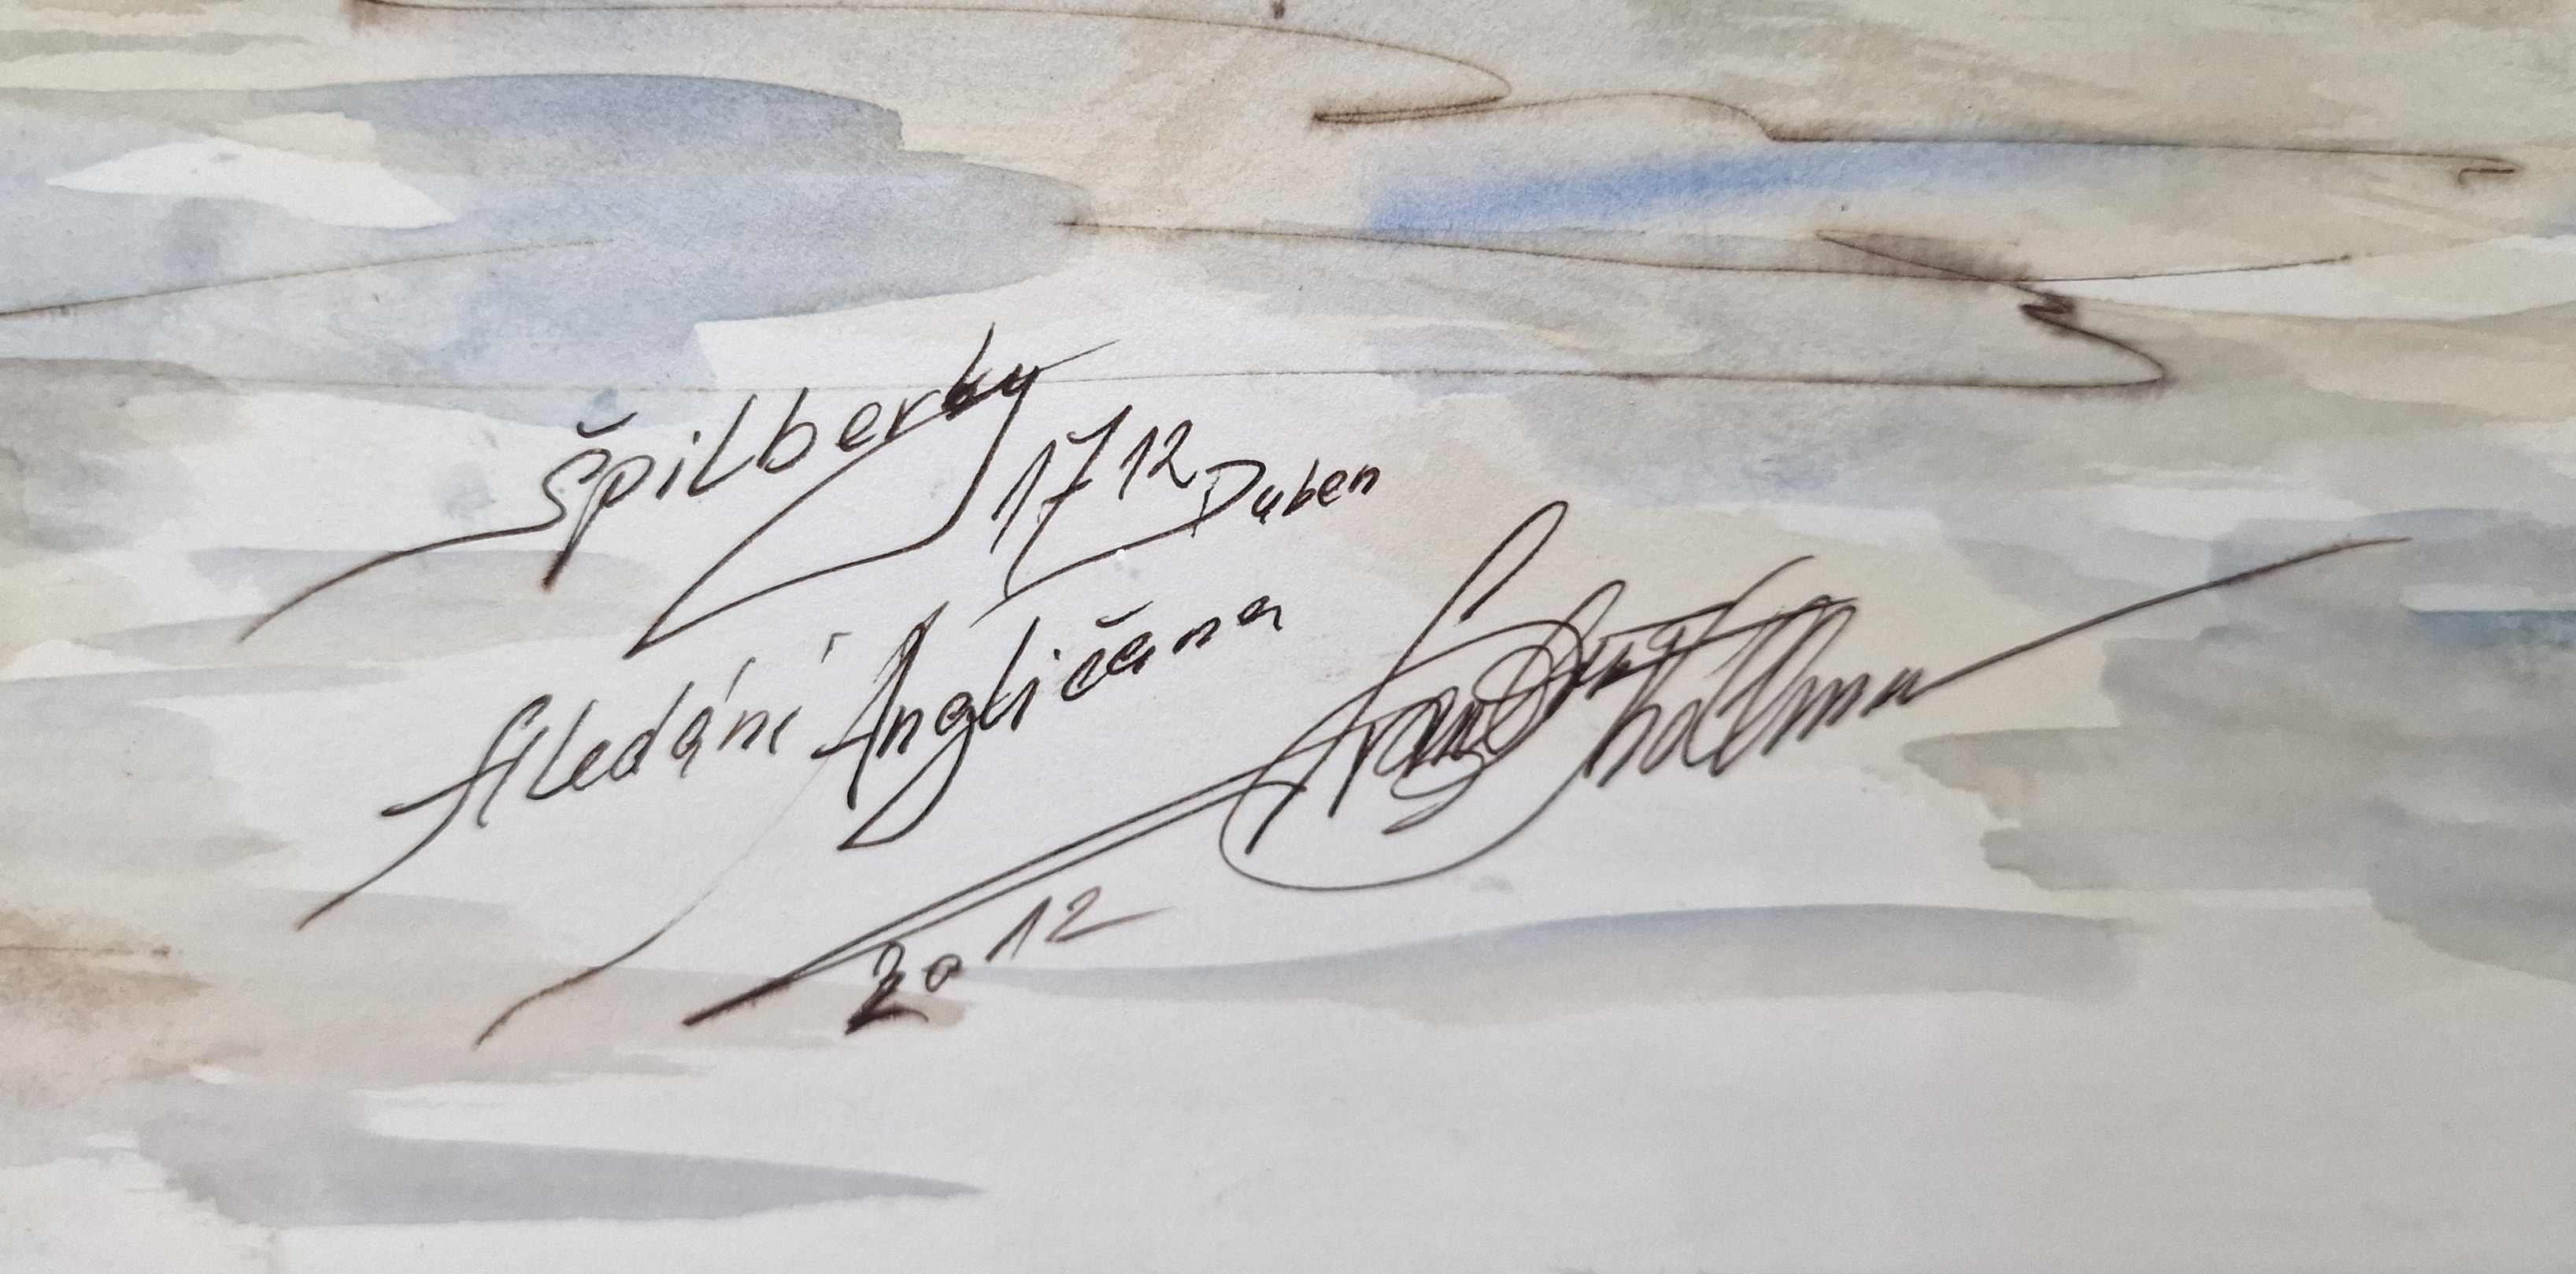 Špilberky
1712 Duben
Hledání Angličana
2012